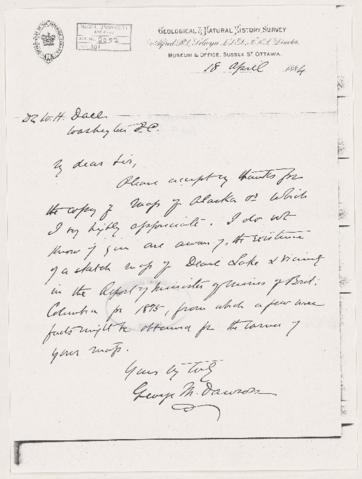 GEOLOGICAL & NATURAL HISTORY SURVEY
Alfred R.C. Selwyn, L.L.D., F.R.S. Director.
MUSEUM & OFFICE, SUSSEX ST OTTAWA.
18 April 1884
Dr W. H. Dall
Washington D.C.
My dear Sir,
Please accept my thanks for
the copy of map of Alaska &c which
I very highly appreciate. I do not
know if you are aware of the existence
of a sketch map of Dease Lake & vicinity
in the Report of Minister of Mines of Brit.
Columbia for 1875, from which a few more
facts might be obtained for the corner of
your map.
Yours very truly
George M. Dawson